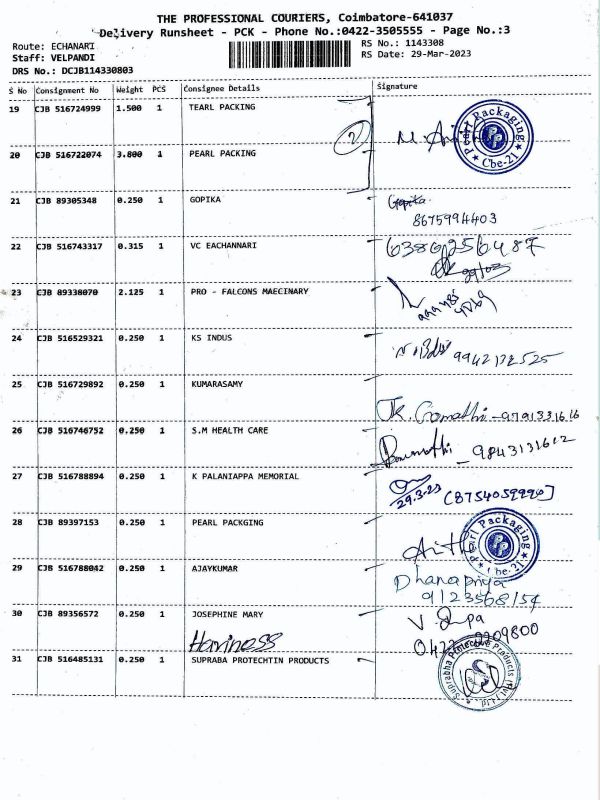 THE PROFESSIONAL COURIERS, Coimbatore-641037
Delivery Runsheet - PCK - Phone No.:0422-3505555 - Page No.:3
Route: ECHANARI
RS No.: 1143308
Staff: VELPANDI
RS Date: 29-Mar-2023
DRS No.: DCJB114330803
S No Consignment No Weight PCS Consignee Details Signature
19 CJB 516724999 1.500 1 TEARL PACKING
Pearl Packaging Cbe-21
2
20 CJB 516722074 3.800 1 PEARL PACKING
21 CJB 89305348 0.250 1 GOPIKA Gopika
8675994403
22 CJB 516743317 0.315 1 VC EACHANNARI 6386256487
29/03
23 CJB 89338070 2.125 1 PRO - FALCONS MAECINARY
24 CJB 516529321 0.250 1 KS INDUS 9942132525
25 CJB 516729892 0.250 1 KUMARASAMY
K. Gomathi - 9791331616
26 CJB 516746752 0.250 1 S.M HEALTH CARE
- 9843131612
27 CJB 516788894 0.250 1 K PALANIAPPA MEMORIAL
29.3.23 (8754059990)
28 CJB 89397153 0.250 1 PEARL PACKGING
Pearl Packaging Cbe-21
29 CJB 516788042 0.250 1 AJAYKUMAR
Dhanapriya
9123568154
30 CJB 89356572 0.250 1 JOSEPHINE MARY
31 CJB 516485131 0.250 1 SUPRABA PROTECHTIN PRODUCTS
Suprabha Protective Products (Pvt) Ltd.